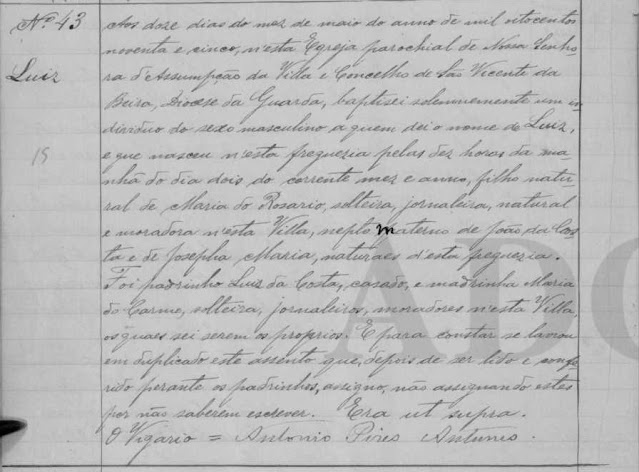 Nº 43
Luiz
15
Aos doze dias do mez de maio do anno de mil oitocentos
noventa e cinco, n'esta Egreja parochial de Nossa Senho-
ra d'Assumpção da Villa e Concelho de São Vicente da
Beira, Diocese da Guarda, baptisei solemnemente um in-
dividuo do sexo masculino a quem dei o nome de Luiz,
e que nasceu n'esta freguezia pelas dez horas da ma-
nhã do dia dois do corrente mez e anno, filho natu-
ral de Maria do Rosario, solteira, jornaleira, natural
e moradora n'esta Villa, nepto materno de João da Cos-
ta e de Josepha Maria, naturaes d'esta freguezia.
Foi padrinho Luiz da Costa, casado, e madrinha Maria
do Carmo, solteira, jornaleiros, moradores n'esta Villa,
os quaes sei serem os proprios. E para constar se lavrou
em duplicado este assento que, depois de ser lido e confe-
rido perante os padrinhos, assigno, não assignando estes
por não saberem escrever. Era ut supra.
O Vigario = Antonio Pires Antunes.
ADC